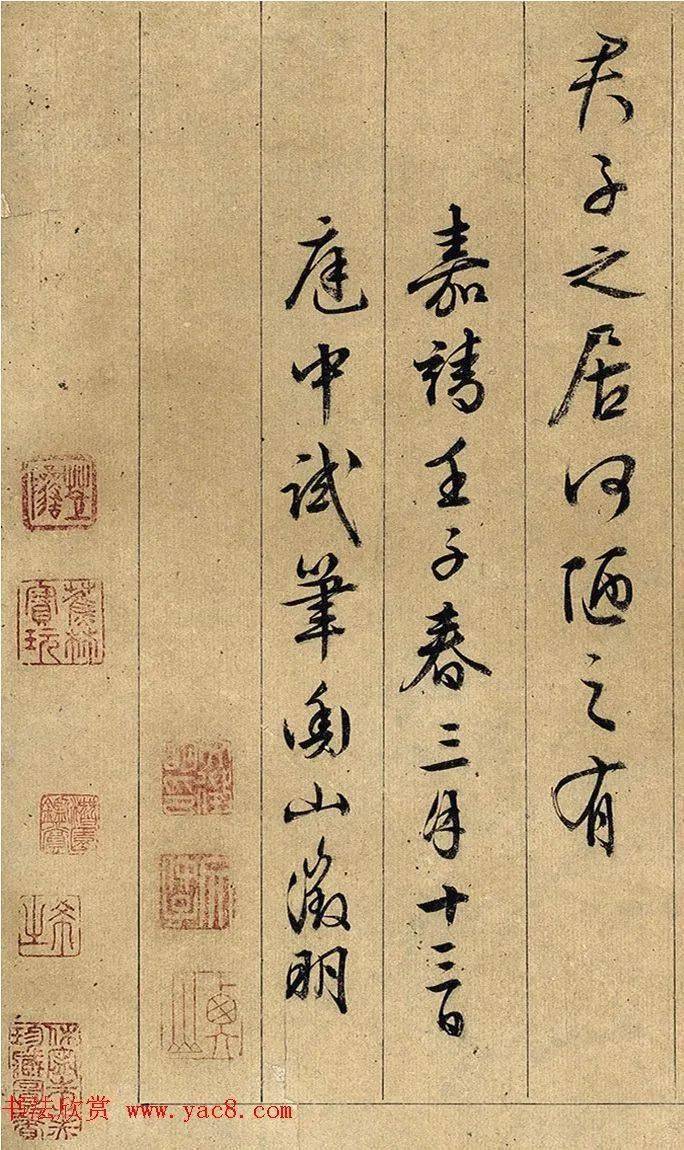 君子之居何陋之有
嘉靖壬子春三月十三日
庭中試筆衡山徵明
蕉林寶玩
书法欣赏 www.yac8.com